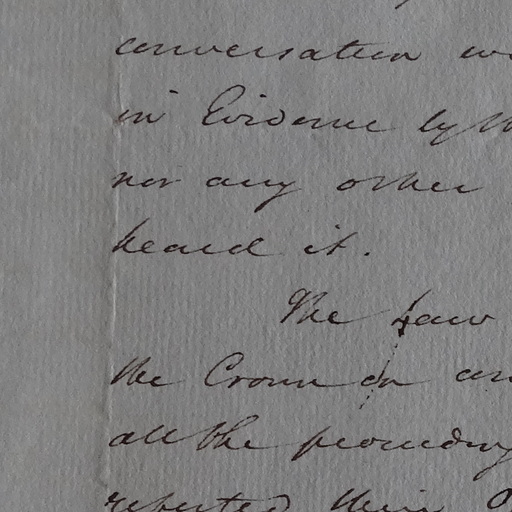 conversation
in Evidence by
nor any other
heard it.
The Law
the Crown on
all the proceedings
reported their